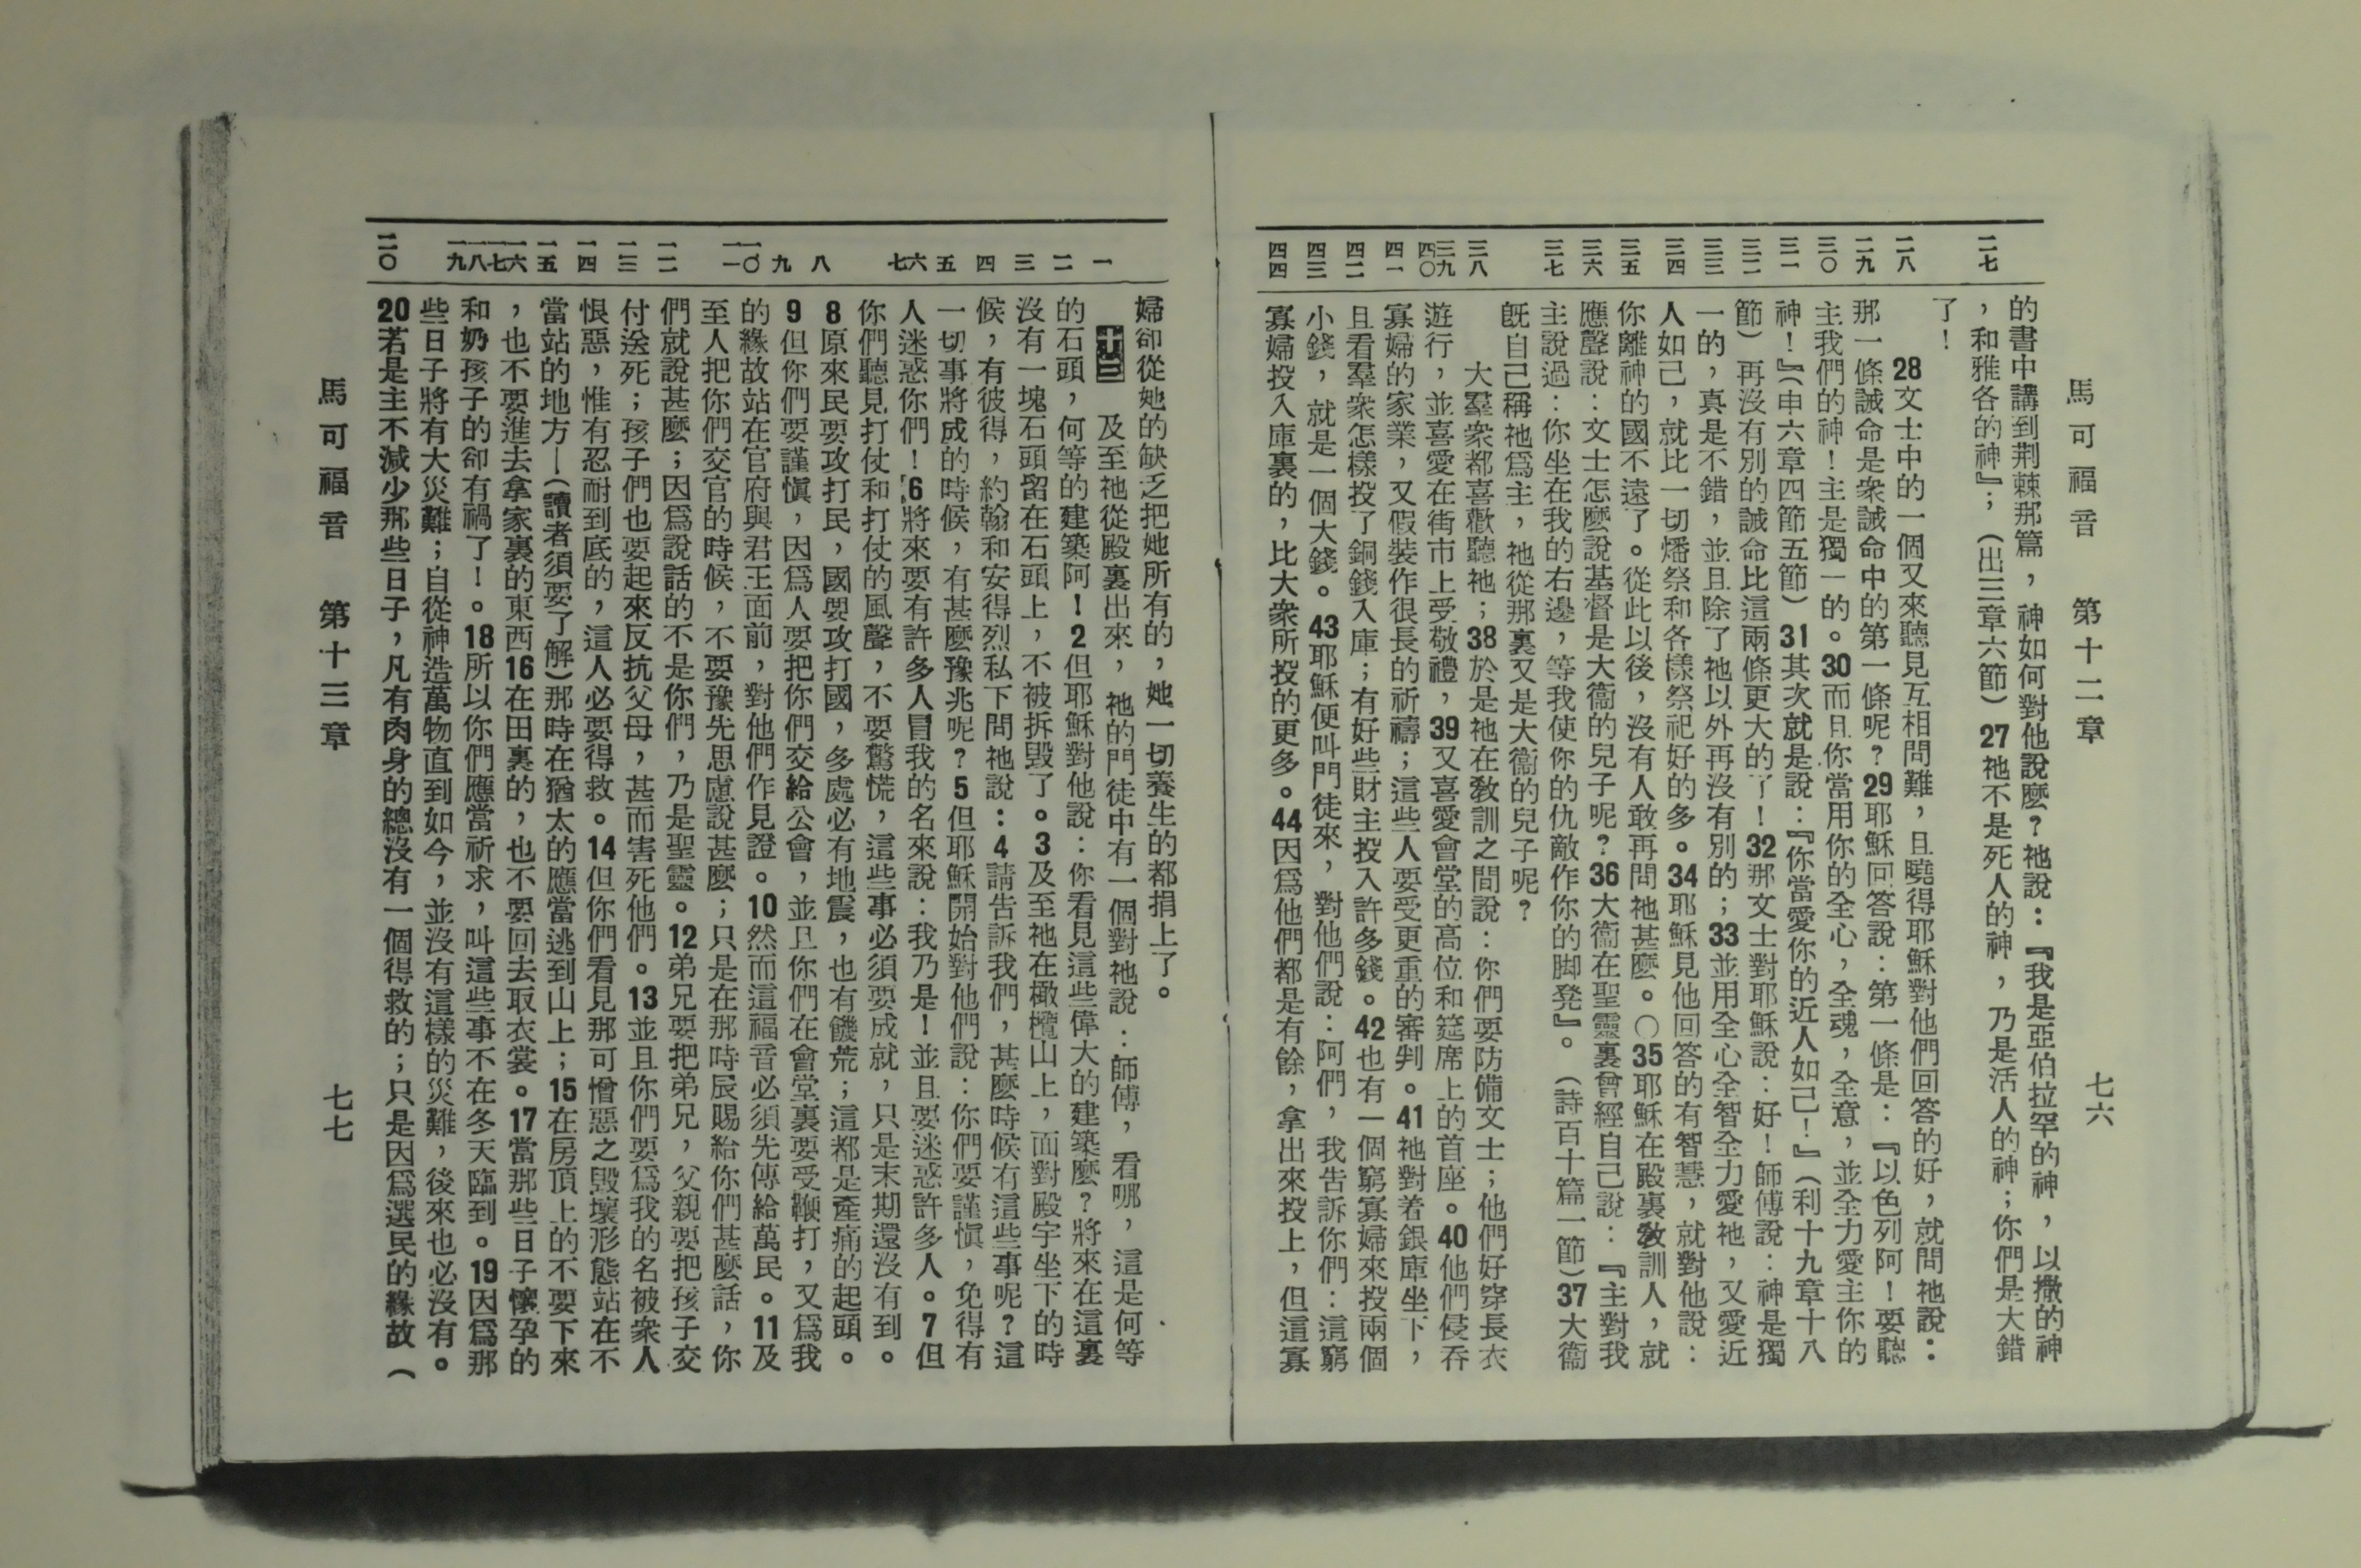 馬可福音　第十二章　七六
二七
二八
二九
三〇
三一
三二
三三
三四
三五
三六
三七
三八
三九
四〇
四一
四二
四三
四四
的書中講到荆棘那篇，神如何對他說麼？祂說：『我是亞伯拉罕的神，以撒的神
，和雅各的神』；（出三章六節）27祂不是死人的神，乃是活人的神；你們是大錯
了！
28文士中的一個又來聽見互相問難，且曉得耶穌對他們回答的好，就問祂說：
那一條誡命是衆誡命中的第一條呢？29耶穌回答說：第一條是：『以色列阿！要聽
主我們的神！主是獨一的。30而且你當用你的全心，全魂，全意，並全力愛主你的
神！』（申六章四節五節）31其次就是說：『你當愛你的近人如己！』（利十九章十八
節）再沒有別的誡命比這兩條更大的了！32那文士對耶穌說：好！師傅說：神是獨
一的，真是不錯，並且除了祂以外再沒有別的；33並用全心全智全力愛祂，又愛近
人如己，就比一切燔祭和各樣祭祀好的多。34耶穌見他回答的有智慧，就對他說：
你離神的國不遠了。從此以後，沒有人敢再問祂甚麼。〇35耶穌在殿裏教訓人，就
應聲說：文士怎麼說基督是大衞的兒子呢？36大衞在聖靈裏曾經自己說：『主對我
主說過：你坐在我的右邊，等我使你的仇敵作你的脚凳』。（詩百十篇一節）37大衞
旣自己稱祂爲主，祂從那裏又是大衞的兒子呢？
大羣衆都喜歡聽祂；38於是祂在教訓之間說：你們要防備文士；他們好穿長衣
遊行，並喜愛在街市上受敬禮，39又喜愛會堂的高位和筵席上的首座。40他們侵吞
寡婦的家業，又假裝作很長的祈禱；這些人要受更重的審判。41祂對着銀庫坐下，
且看羣衆怎樣投了銅錢入庫；有好些財主投入許多錢。42也有一個窮寡婦來投兩個
小錢，就是一個大錢。43耶穌便叫門徒來，對他們說：阿們，我告訴你們：這窮
寡婦投入庫裏的，比大衆所投的更多。44因爲他們都是有餘，拿出來投上，但這寡
一
二
三
四
五
六
七
八
九
一〇
一一
一二
一三
一四
一五
一六
一七
一八
一九
二〇
婦卻從她的缺乏把她所有的，她一切養生的都捐上了。
十三　及至祂從殿裏出來，祂的門徒中有一個對祂說：師傅，看哪，這是何等
的石頭，何等的建築阿！2但耶穌對他說：你看見這些偉大的建築麼？將來在這裏
沒有一塊石頭留在石頭上，不被拆毀了。3及至祂在橄欖山上，面對殿宇坐下的時
候，有彼得，約翰和安得烈私下問祂說：4請告訴我們，甚麼時候有這些事呢？這
一切事將成的時候，有甚麼豫兆呢？5但耶穌開始對他們說：你們要謹愼，免得有
人迷惑你們！6將來要有許多人冒我的名來說：我乃是！並且要迷惑許多人。7但
你們聽見打仗和打仗的風聲，不要驚慌，這些事必須要成就，只是末期還沒有到。
8原來民要攻打民，國要攻打國，多處必有地震，也有饑荒；這都是產痛的起頭。
9但你們要謹愼，因爲人要把你們交給公會，並且你們在會堂裏要受鞭打，又爲我
的緣故站在官府與君王面前，對他們作見證。10然而這福音必須先傳給萬民。11及
至人把你們交官的時候，不要豫先思慮說甚麼；只是在那時辰賜給你們甚麼話，你
們就說甚麼；因爲說話的不是你們，乃是聖靈。12弟兄要把弟兄，父親要把孩子交
付送死；孩子們也要起來反抗父母，甚而害死他們。13並且你們要爲我的名被衆人
恨惡，惟有忍耐到底的，這人必要得救。14但你們看見那可憎惡之毀壞形態站在不
當站的地方—（讀者須要了解）那時在猶太的應當逃到山上；15在房頂上的不要下來
，也不要進去拿家裏的東西16在田裏的，也不要回去取衣裳。17當那些日子懷孕的
和奶孩子的卻有禍了！。18所以你們應當祈求，叫這些事不在冬天臨到。19因爲那
些日子將有大災難；自從神造萬物直到如今，並沒有這樣的災難，後來也必沒有。
20若是主不減少那些日子，凡有肉身的總沒有一個得救的；只是因爲選民的緣故（
馬可福音　第十三章　七七